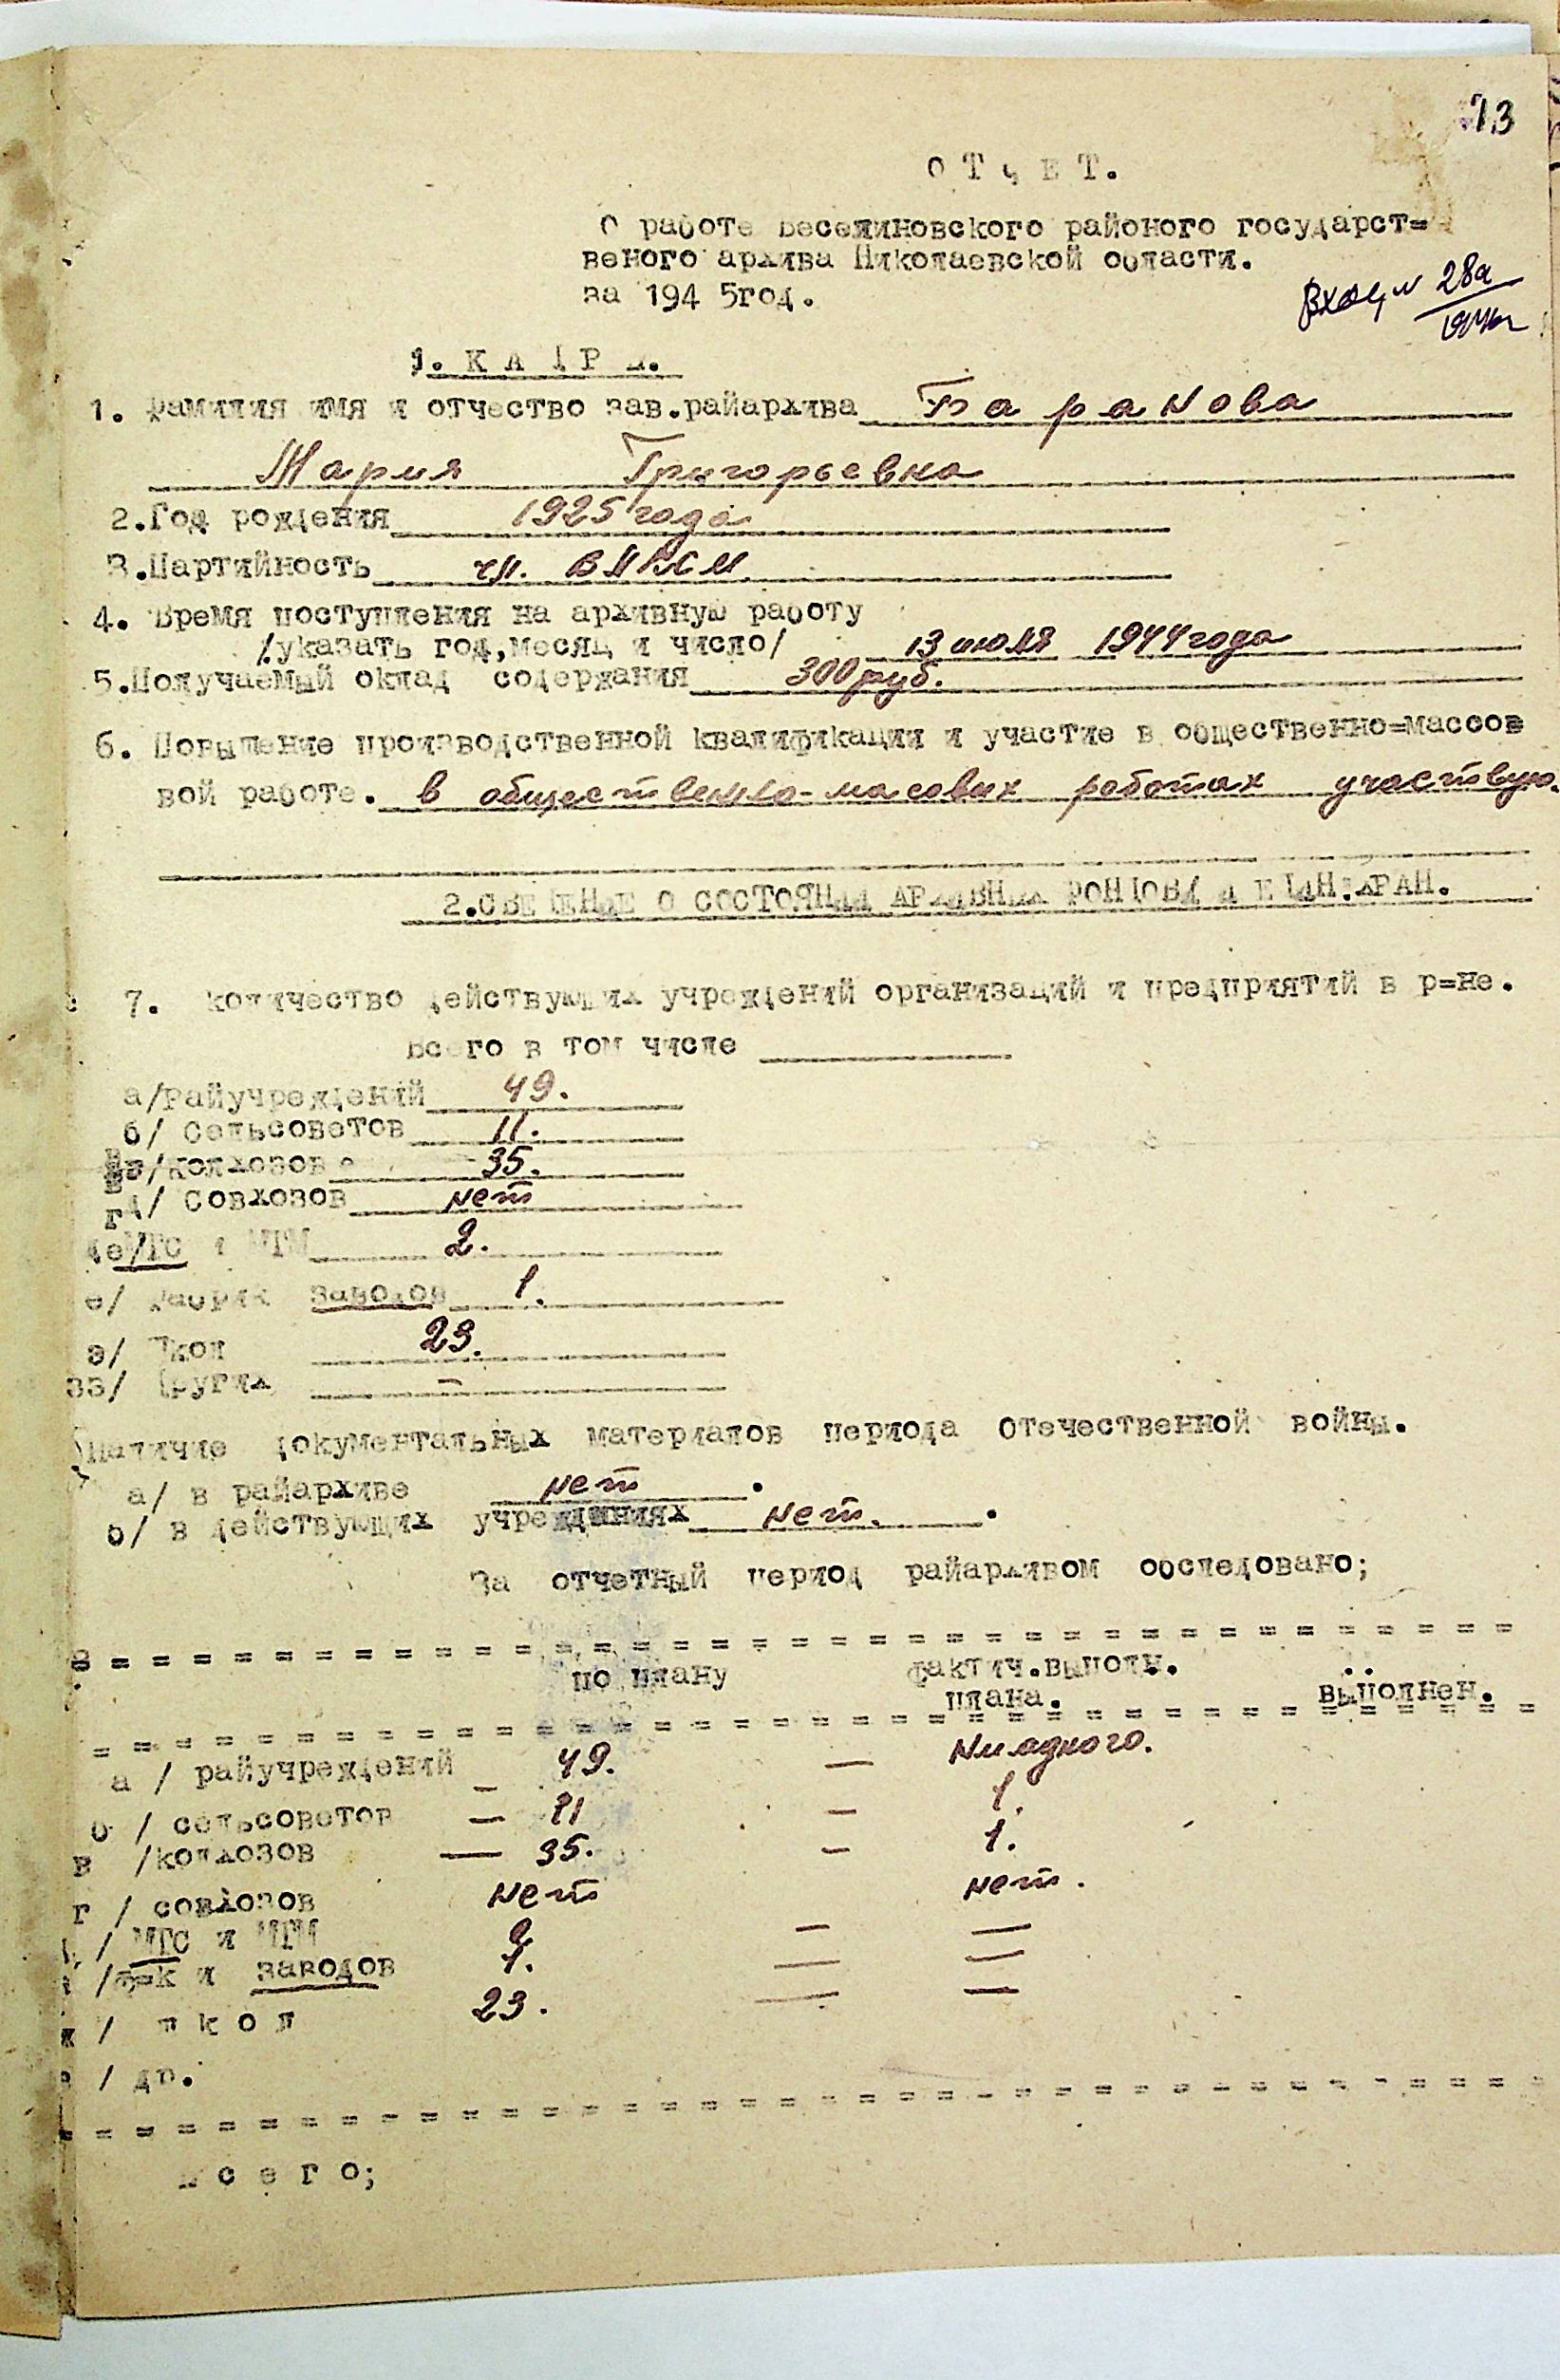 73
О Т Ч Е Т.
О работе Веселиновского районого государст=
веного архива Николаевской области.
за 194 5год.
Входщ N 28а
1946г
1. К А Д Р Ы.
1. Фамилия имя и отчество зав.райархива Баранова
Мария Григорьевна
2.Год рождения 1925 года
3.Партийность чл. ВЛКСМ
4. Время поступления на архивную работу
/указать год,месяц и число/ 13 июля 1944 года
5.Получаемый оклад содержания 300 руб.
6. Повышение производственной квалификации и участие в общественно=массов
вой работе. в общественно-масових работах участвую.
2.СВЕДЕНИЕ О СОСТОЯНИИ АРХИВНЫХ ФОНДОВ
7. Количество действующих учреждений организаций и предприятий в р=не.
Всего в том числе
а/Райучреждений 49.
б/ Сельсоветов 11.
в/колхозов 35.
г/ Совхозов нет
МТС и МТМ 2.
е/ Фабрик заводов 1.
Школ 23.
Других –
Наличие документальных материалов периода Отечественной войны.
а/ в райархиве нет.
б/ в действующих учреждениях нет.
За отчетный период райархивом обследовано;
по плану фактич.выполн. выполнен.
плана.
а / райучреждений 49. — Ни одного.
б / сельсоветов — 11 – 1.
в /колхозов — 35. – 1.
г / совхозов нет нет.
/ МТС и МТМ 2 — —
/ф=к и заводов 1. — —
ж / ш к о л 23. — —
/ др.
В с е г о;